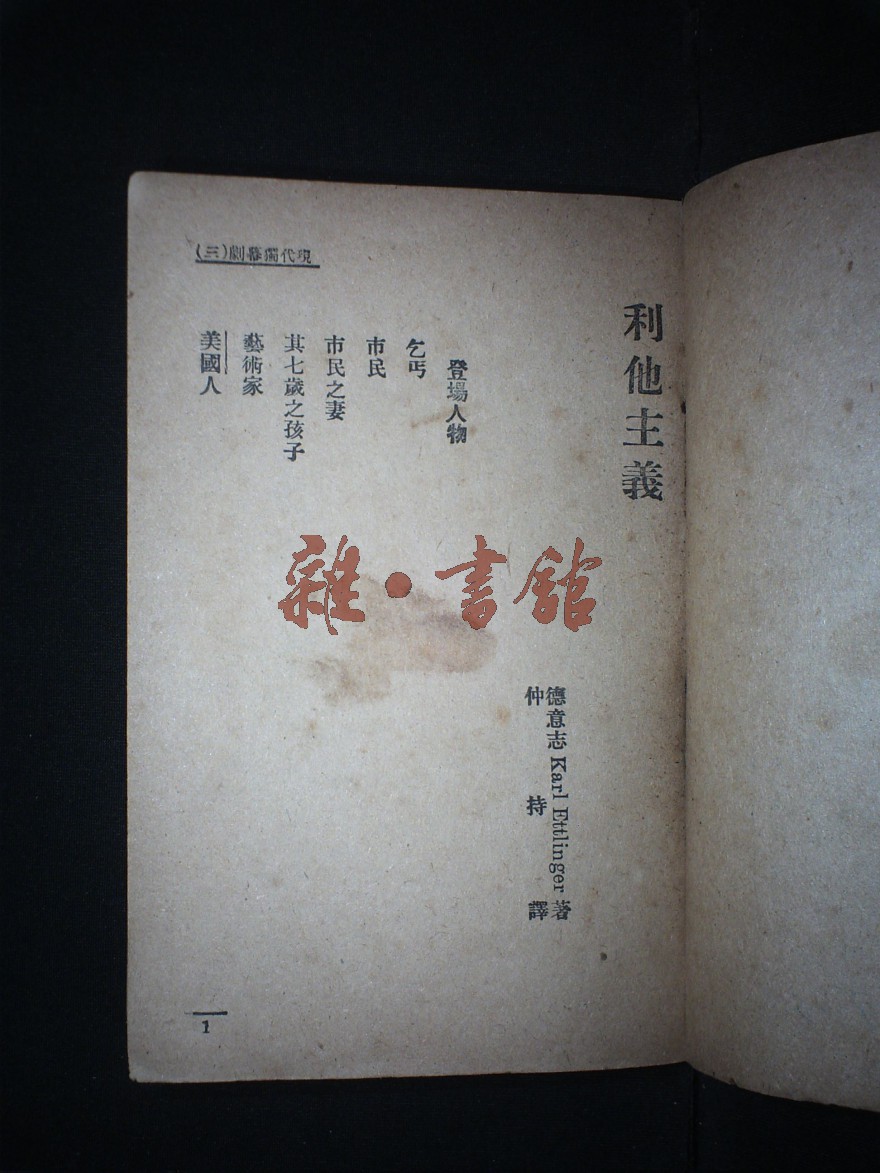 現代獨幕劇(三)
利他主義
德意志 Karl Ettlinger 著
仲持譯
登場人物
乞丐
市民
市民之妻
其七歲之孩子
藝術家
美國人
1
雜·書館